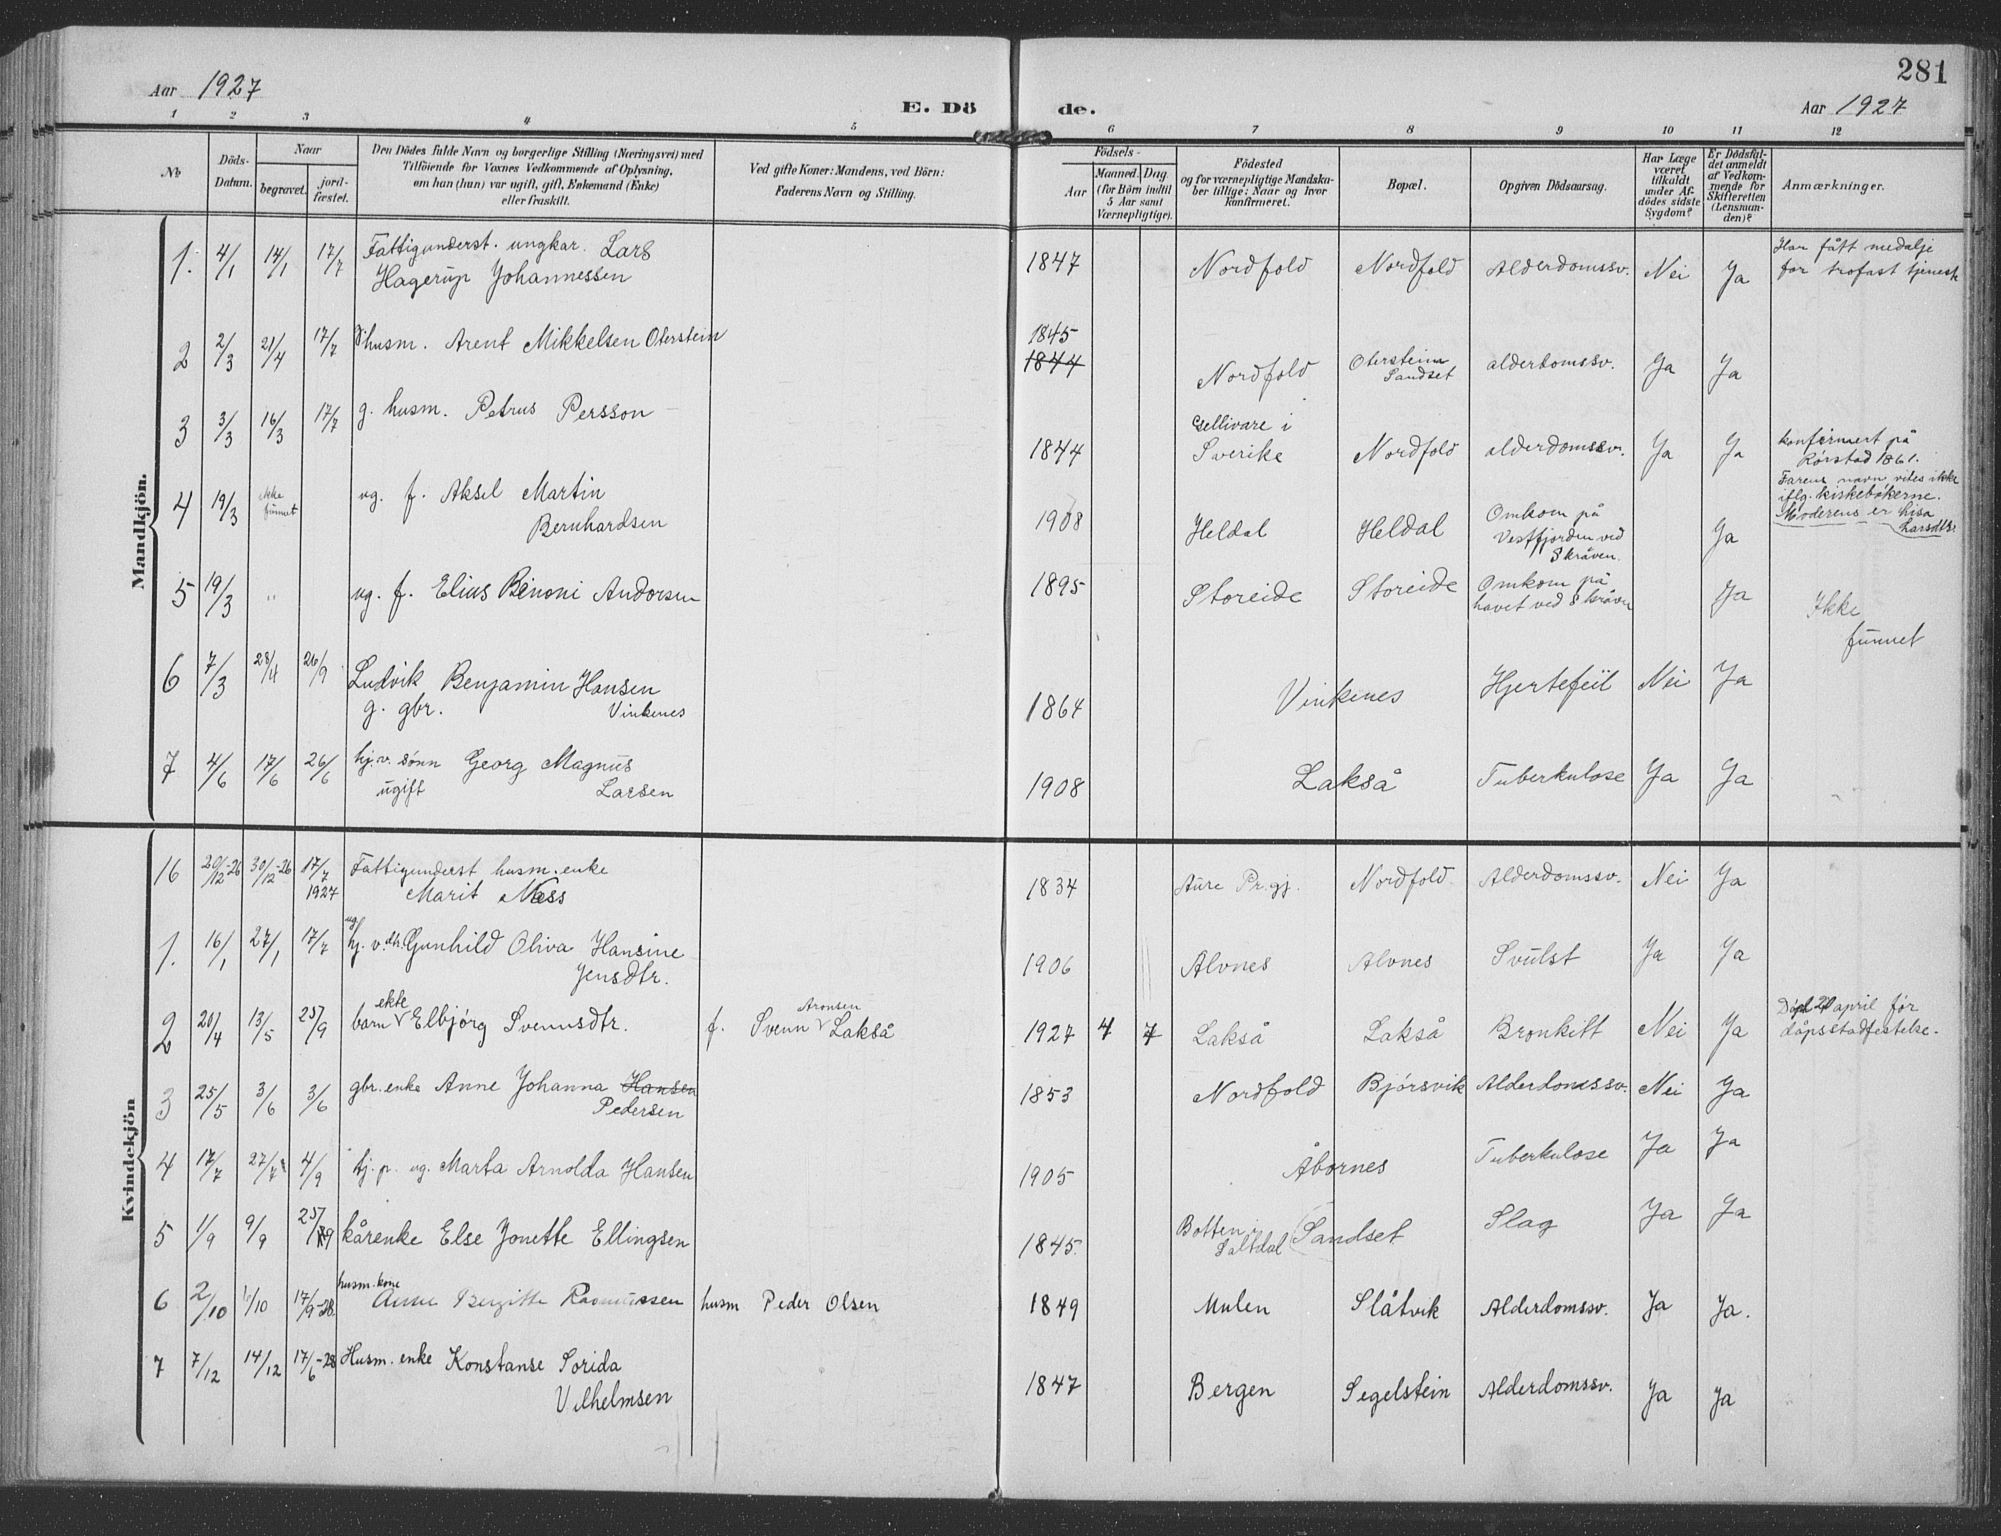 281
Aar 1927
E. Dö de.
Aar 1927
1 2 3 4 5 6 7 8 9 10 11 12
No
Döds-Datum.
Naar
begravet.
jord-fæstet.
Den Dödes fulde Navn og borgerlige Stilling (Næringsvei) med
Tilföiende for Voxnes Vedkommende af Oplysning,
om han (hun) var ugift, gift, Enkemand (Enke)
eller fraskilt.
Ved gifte Koner: Mandens, ved Börn:
Faderens Navn og Stilling.
Födsels-
Aar
Maaned. Dag
(for Börn indtil
5 Aar samt
Værnepligtige).
Födested
og for værnepligtige Mandska-
ber tillige: Naar og hvor
konfirmeret.
Bopæl.
Opgiven Dödsaarsag.
Har Læge
været
tilkaldt
under Af-
dödes sidste
Sygdom?
Er Dödsfal-
det anmeldt
af Vedkom-
mende for
Skifteretten
(Lensman-
den)?
Anmærkninger.
Mandkjön.
1. 4/1 14/1 17/7 Fattigunderst. ungkar. Lars
Hagerup Johannessen
1847 Nordfold Nordfold Alderdomssv. Nei Ja
Har fått medalje
for trofast tjenest
2 2/3 21/4 17/7 husm. Arent Mikkelsen Oterstein
1845
1844 Nordfold Oterstein
Sandset alderdomssv. Ja Ja
3 3/3 16/3 17/7 g. husm. Petrus Persson
1844 Gellivare i
Sverike Nordfold alderdomssv. Ja Ja
konfirmert på
Rørstad 1861.
Farens navn vites ikke
iflg. kirkebøkerne.
Moderens er Lisa
Larsdtr.
4 19/3 ikke
funnet ug. f. Aksel Martin
Bernhardsen
1908 Heldal Heldal Omkom på
Vestfjorden ved
Skråven. Ja
5 19/3 " ug. f. Elias Benoni Andorsen
1895 Storeide Storeide Omkom på
havet ved Skråven Ja
Ikke
funnet
6 7/3 28/4 26/9 Ludvik Benjamin Hansen
g. gbr. Vinkenes
1864 Vinkenes Hjertefeil Nei Ja
7 4/6 17/6 26/6 hj.v. sønn Georg Magnus
ugift Larsen
1908 Lakså Tuberkulose Ja Ja
Kvindekjön
16 20/12-26 30/12-26 17/7
1927 Fattigunderst husm. enke
Marit Næss
1834 Aure Pr.gj. Nordfold Alderdomssv. Nei Ja
1. 16/1 27/1 17/7 ug
hj. v. dtr. Gunhild Oliva Hansine
Jensdtr.
1906 Alvnes Alvnes Svulst Ja Ja
2 20/4 13/5 25/9 ekte
barn Elbjørg Svennsdtr. f. Svenn Aronsen Lakså
1927 4 7 Lakså Lakså Bronkitt Nei Ja
april før
dåpsstadfestelse.
3 25/5 3/6 3/6 gbr. enke Anne Johanna Hansen
Pedersen
1853 Nordfold Bjørsvik Alderdomssv. Nei Ja
4 17/7 27/7 4/9 hj. p. ug. Marta Arnolda Hansen
1905 Åbornes Tuberkulose Ja Ja
5 1/9 9/9 25/9 kårenke Else Jonette Ellingsen
1845 Botten i
Saltdal Sandset Slag Ja Ja
6 2/10 /10 17/9-28 husm. kone
Anne Bergitte Rasmussen husm Peder Olsen
1849 Mulen Slåtvik Alderdomssv. Ja Ja.
7 7/12 14/12 17/6-28 Husm. enke Konstanse Sorida
Vilhelmsen
1847 Bergen Segelstein Alderdomssv. Ja Ja